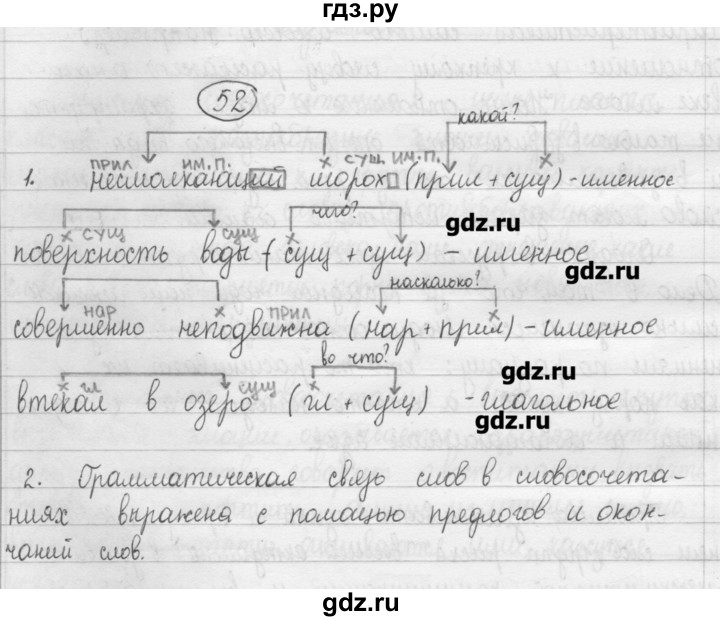 гдз.ру
52
какой?
прил им. п. сущ. им. п.
1. несмолкающий шорох (прил + сущ) - именное
чего?
gdz.ru
сущ сущ
поверхность воды (сущ + сущ) - именное
gdz.ru
насколько?
нар прил
совершенно неподвижна (нар + прил) - именное
во что?
gdz.ru
гл сущ
втекал в озеро (гл + сущ) - глагольное
2. Грамматическая связь слов в словосочета-
ниях выражена с помощью предлогов и окон-
чаний слов.
gdz.ru